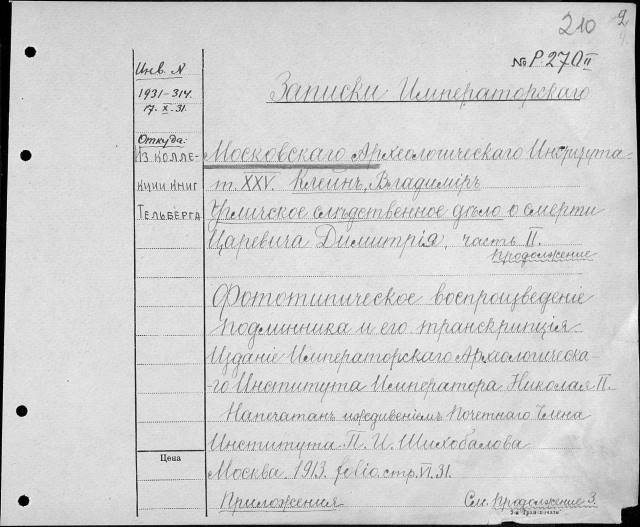 210 2
№ P.270 II
Инв. N
1931-314.
17. X. 31.
Записки Императорскаго
Откуда:
Из колле-
кции книг
Тельберга
Московскаго Археологическаго Института-
т. XXV. Клейнъ, Владимiръ
Угличское слѣдственное дѣло о смерти
Царевича Димитрiя, часть II.
продолжение
Фототипическое воспроизведенiе
подлинника и его транскрипцiя.
Изданiе Императорскаго Археологическа-
-го Института Императора Николая II.
Напечатанъ иждивенiемъ Почетнаго Члена
Института П. И. Шихобалова
Цена
Москва 1913. folio. стр. VI. 31.
Приложения См. Продолжение 3.